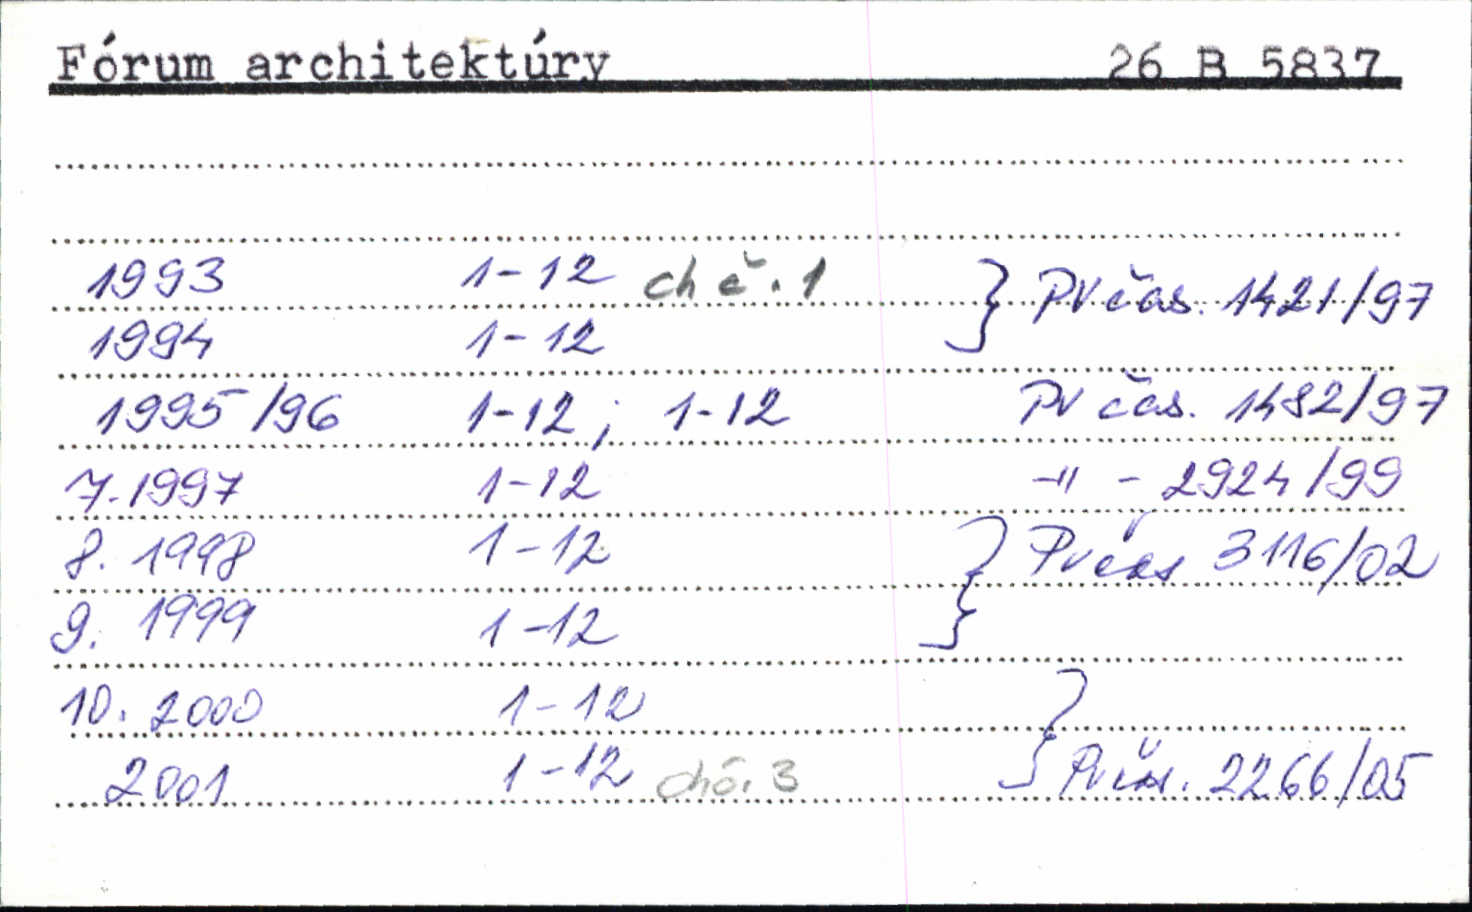 Fórum architektúry 26 B 5837
1993 1-12 ch č. 1 } Pv čas. 1421/97
1994 1-12
1995/96 1-12; 1-12 Pv čas. 1482/97
7. 1997 1-12 -"- 2924/99
8. 1998 1-12 } Pv čas 3116/02
9. 1999 1-12
10. 2000 1-12 }
2001 1-12 chč. 3 Pv čas. 2266/05